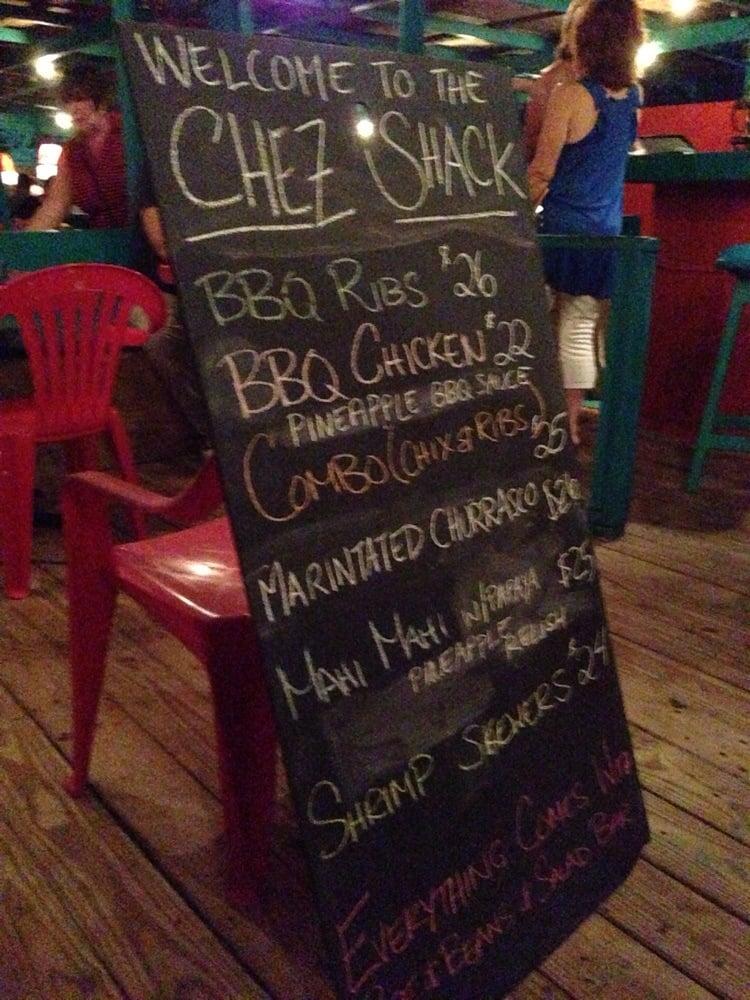 WELCOME TO THE
CHEZ SHACK
BBQ RIBS $26
BBQ CHICKEN $22
PINEAPPLE BBQ SAUCE
COMBO (CHIX & RIBS) $25
MARINTATED CHURRASCO $26
MAHI MAHI W/PAPAYA $25
PINEAPPLE RELISH
SHRIMP SKEWERS $24
EVERYTHING COMES WITH
RICE & BEANS & SALAD BAR